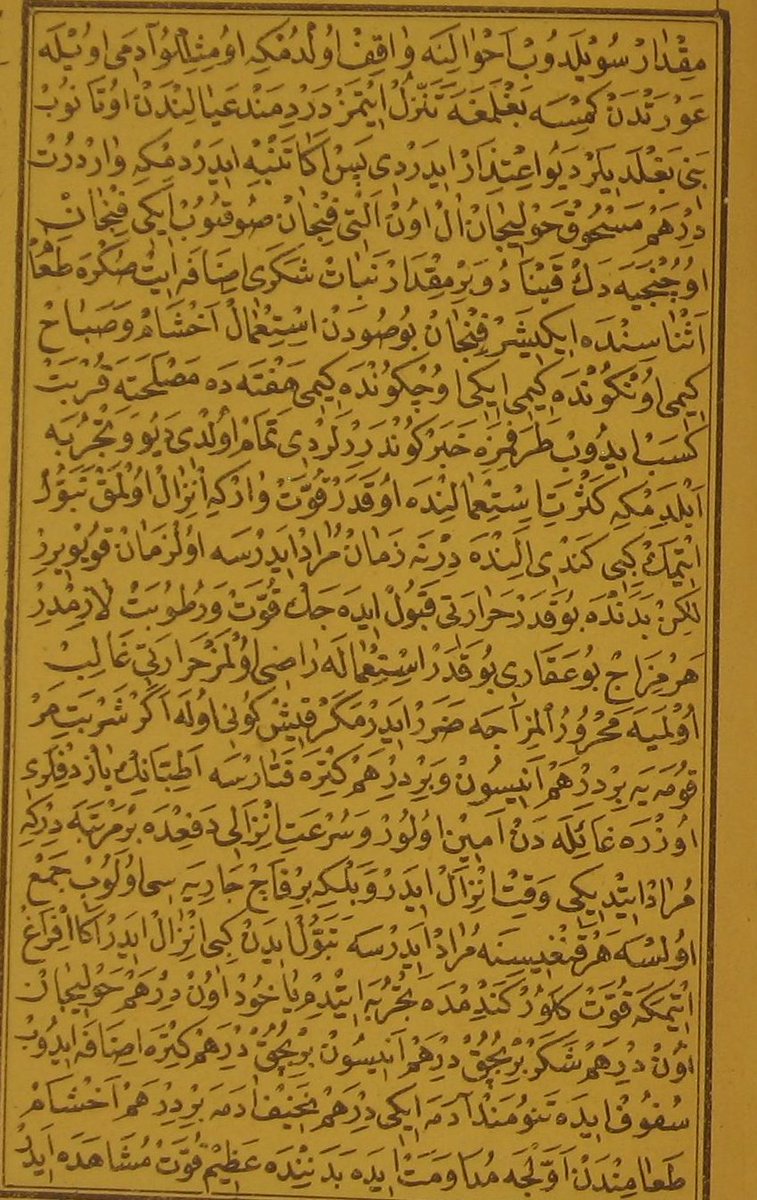 مِقْدَارْ سُوَيْلَدُوبْ اَحْوَالِنَه وَاقِفْ اُولْدُمْكِه اُومِثِللُو آدَمِى اوُيْلَه
عَوْرَتْدَنْ كِمْسَه بَغْلَمَغَه تَنَزُّلْ اِيْتْمَزْ دَرْدِمَنْدْ عَيَالِنْدَنْ اُوتَانُوبْ
بَنِى بَغْلَدِيلَرْ دِيُو اِعْتِذَارْ اِيدَرْدِى پَسْ اَكَا تَنْبِيه اِيدَرْدِمْكِه وَارْ دُرْتْ
دِرْهَمْ مَسْحُوقْ حَوْلِيجَانْ اَلْ اوُنْ اَلْتِى فِنْجَانْ صُو قُيُوبْ اِيكِى فِنْجَانْ
اوُچُنْجِيَه دَكْ قَيْنَادُوبْ بِرْ مِقْدَارْ نَبَاتْ شَكَرِى اِضَافَه اِيتْ صَكْرَه طَعَامْ
اَثْنَاسِنْدَه اِيكِيشَرْ فِنْجَانْ بُوصُودَنْ اِسْتِعْمَالْ اَخْشَامْ وَصَبَاحْ
كِيمِى اوُنْكُونْدَه كِيمِى اِيكِى اوُچْكُونْدَه كِيمِى هَفْتَه دَه مَصْلَحَتَه قُرْبَتْ
كَسْبْ اِيدُوبْ طَرَفِمِزَه خَبَرْ كُونْدَرِرْلَرْدِى تَمَامْ اُولْدِى دِيُو وَتَجْرُبَه
اَيْلَدِمْكِه كَثْرَتِ اِسْتِعْمَالِنْدَه اُوقَدَرْ قُوَّتْ وَارْكِه اِنْزَالْ اُولْمَقْ تَبَوُّلْ
اِتْمِكْ كِبِى كَنْدِى اَلِنْدَه دِرْ نَه زَمَانْ مُرَادْ اِيدَرْسَه اُولْ زَمَانْ قُويُويِرِرْ
لَكِنْ بَدَنْدَه بُوقَدَرْ حَرَارَتِى قَبُولْ اِيدَه جَكْ قُوَّتْ وَرُطُوبَتْ لَازِمْدِرْ
هَرْ مِزَاجْ بُو عَقَارِى بُوقَدَرْ اِسْتِعْمَالَه رَاضِى اُولْمَزْ حَرَارَتِى غَالِبْ
اُولْمَيَه مَحْرُورُ الْمِزَاجَه ضَرَرْ اِيدَرْ مَكَرْ قِيشْ كُونِى اُولَه اَكَرْ شَرْبَتِ مَرْ
قُومَه يَه بِرْ دِرْهَمْ اَنِيسُونْ وَبِرْ دِرْهَمْ كِتْرَه قَتَارْسَه اَطِبَّانِكْ يَازْدِقْلَرِى
اوُزْرَه غَائِلَه دَنْ اَمِينْ اوُلُورْ وَسُرْعَتِ اِنْزَالِى دَفْعِدَه بِرْمَرْتَبَه دِرْكِه
مُرَادْ اِيتْدِيكِى وَقِتْ اِنْزَالْ اِيدَرْ وَبَلْكِه بِرْقَاجْ جَارِيَه سِى اوُلُوبْ جَمْعْ
اوُلْسَه هَرْ قَنْغِيسِنَه مُرَادْ اِيدَرْسَه تَبَوُّلْ اِيدَنْ كِبِى اِنْزَالْ اِيدَرْ اَكَا اِفْرَاغْ
اِتْمِكَه قُوَّتْ كَلُورْ كَنْدِمْدَه تَجْرُبَه اِيتْدِمْ يَاخُودْ اوُنْ دِرْهَمْ حَوْلِيجَانْ
اوُنْ دِرْهَمْ شَكَرْ بِرْبُچُقْ دِرْهَمْ اَنِيسُونْ بِرْبُچُقْ دِرْهَمْ كِتْرَه اِضَافَه اِيدُوبْ
سُفُوفْ اِيدَه تَنُومَنْدْ آدَمَه اِيكِى دِرْهَمْ نَحِيفْ آدَمَه بِرْ دِرْهَمْ اَخْشَامْ
طَعَامِنْدَنْ اَوَّلْجَه مُدَاوَمَتْ اِيدَه بَدَنِنْدَه عَظِيمْ قُوَّتْ مُشَاهَدَه اِيدَرْ